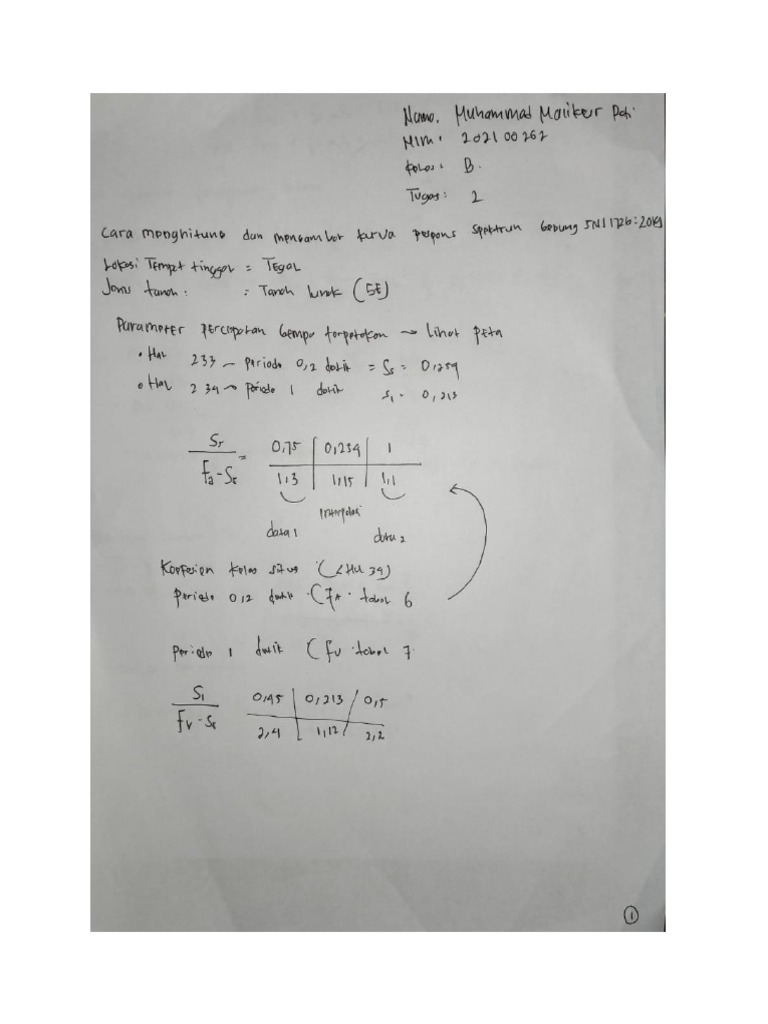 Nama. Muhammad Malikur
NIM: 202100262
Kelas: B.
Tugas: 2
Cara menghitung dan menggambar kurva respons spektrum Gedung SNI 1726:2019
Lokasi Tempat tinggal = Tegal
Jenis tanah: = Tanah lunak (SE)
Parameter percepatan Gempa terpetakan → Lihat peta
• Hal 233 – periode 0,2 detik = Ss =
• Hal 234 → periode 1 detik S1 = 0,213
Ss = 0,75 | 0,234 | 1
Fa - SE 1,3 | 1,15 | 1,1
interpolasi
data 1 data 2
Koefesien kelas situs 34)
periode 0,2 detik (FA. tabel 6
periode 1 detik (Fv. tabel 7
S1 0,45 | 0,213 / 0,5
Fv - SE 2,4 | 1,12 / 2,2
1